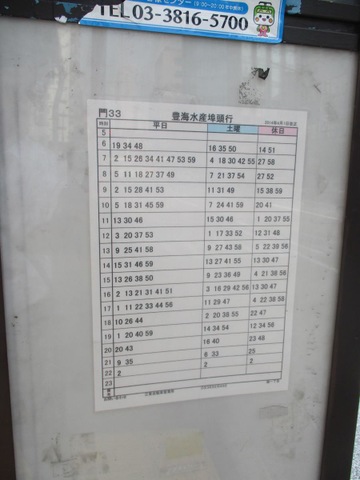 TEL 03-3816-5700
門33 豊海水産埠頭行
時刻 平日 土曜 休日
5
6 19 34 48 16 35 50 14 51
7 2 15 26 34 41 47 53 59 4 18 30 42 55 27 58
8 5 11 18 27 37 49 7 21 37 54 27 52
9 2 15 28 41 53 11 31 49 15 38 59
10 5 18 31 45 59 7 24 41 59 20 41
11 13 30 46 15 30 46 1 20 37 55
12 3 20 37 53 1 17 33 52 12 31 48
13 9 25 41 58 9 27 43 58 5 22 39 56
14 15 31 46 59 14 25 41 56 13 30 47
15 13 26 38 50 9 23 36 49 4 21 38 56
16 2 13 21 31 41 51 3 16 29 42 56 13 30 47
17 1 11 22 33 44 56 11 28 47 4 22 38 58
18 10 26 44 2 20 38 55 22 47
19 1 20 40 59 14 34 54 12 34 56
20 20 43 16 40 23 48
21 9 35 6 33 25
22 2 2
23